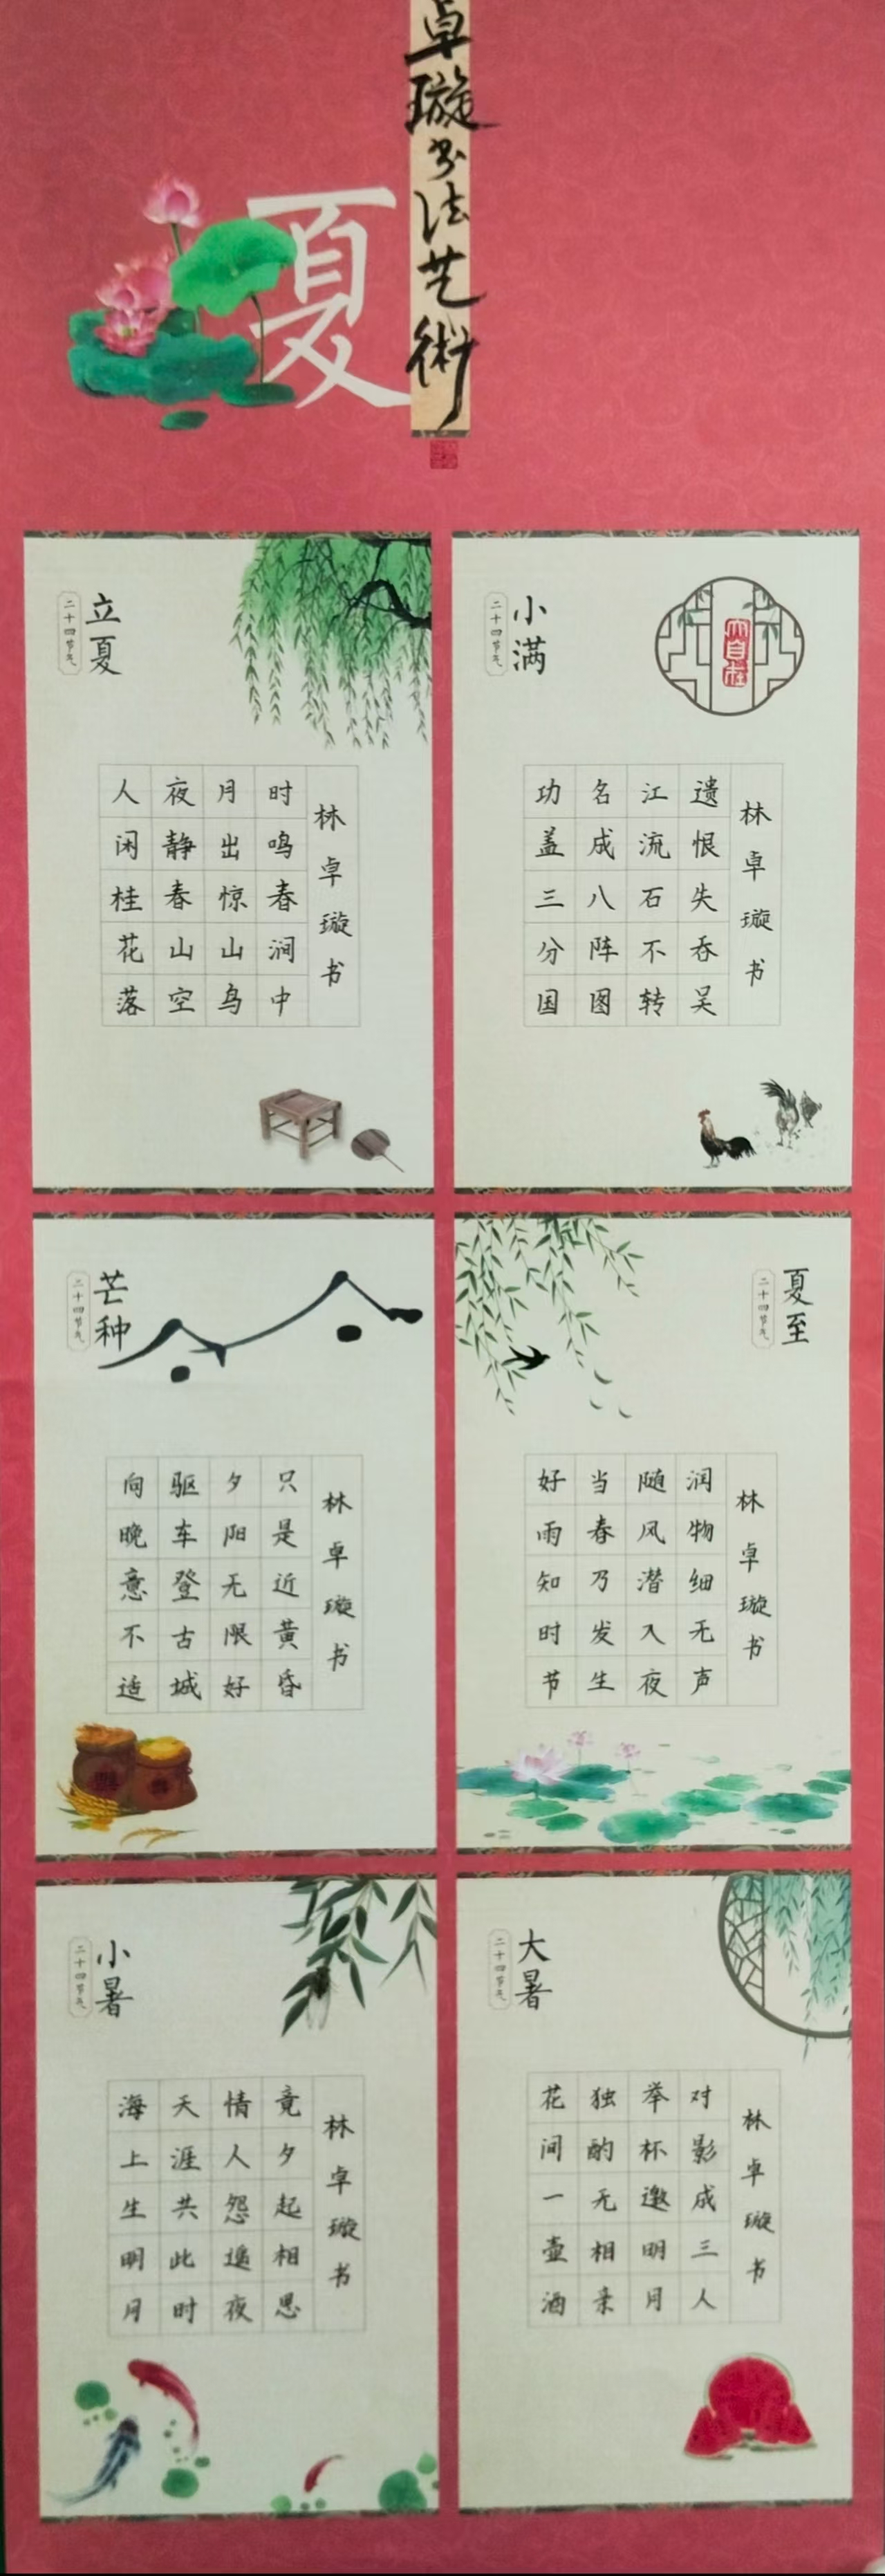 卓璇书法艺術
夏
立夏
二十四节气
人闲桂花落
夜静春山空
月出惊山鸟
时鸣春涧中
林卓璇书
小满
二十四节气
大自在
功盖三分国
名成八阵图
江流石不转
遗恨失吞吴
林卓璇书
芒种
二十四节气
向晚意不适
驱车登古城
夕阳无限好
只是近黄昏
林卓璇书
夏至
二十四节气
好雨知时节
当春乃发生
随风潜入夜
润物细无声
林卓璇书
小暑
二十四节气
海上生明月
天涯共此时
情人怨遥夜
竟夕起相思
林卓璇书
大暑
二十四节气
花间一壶酒
独酌无相亲
举杯邀明月
对影成三人
林卓璇书